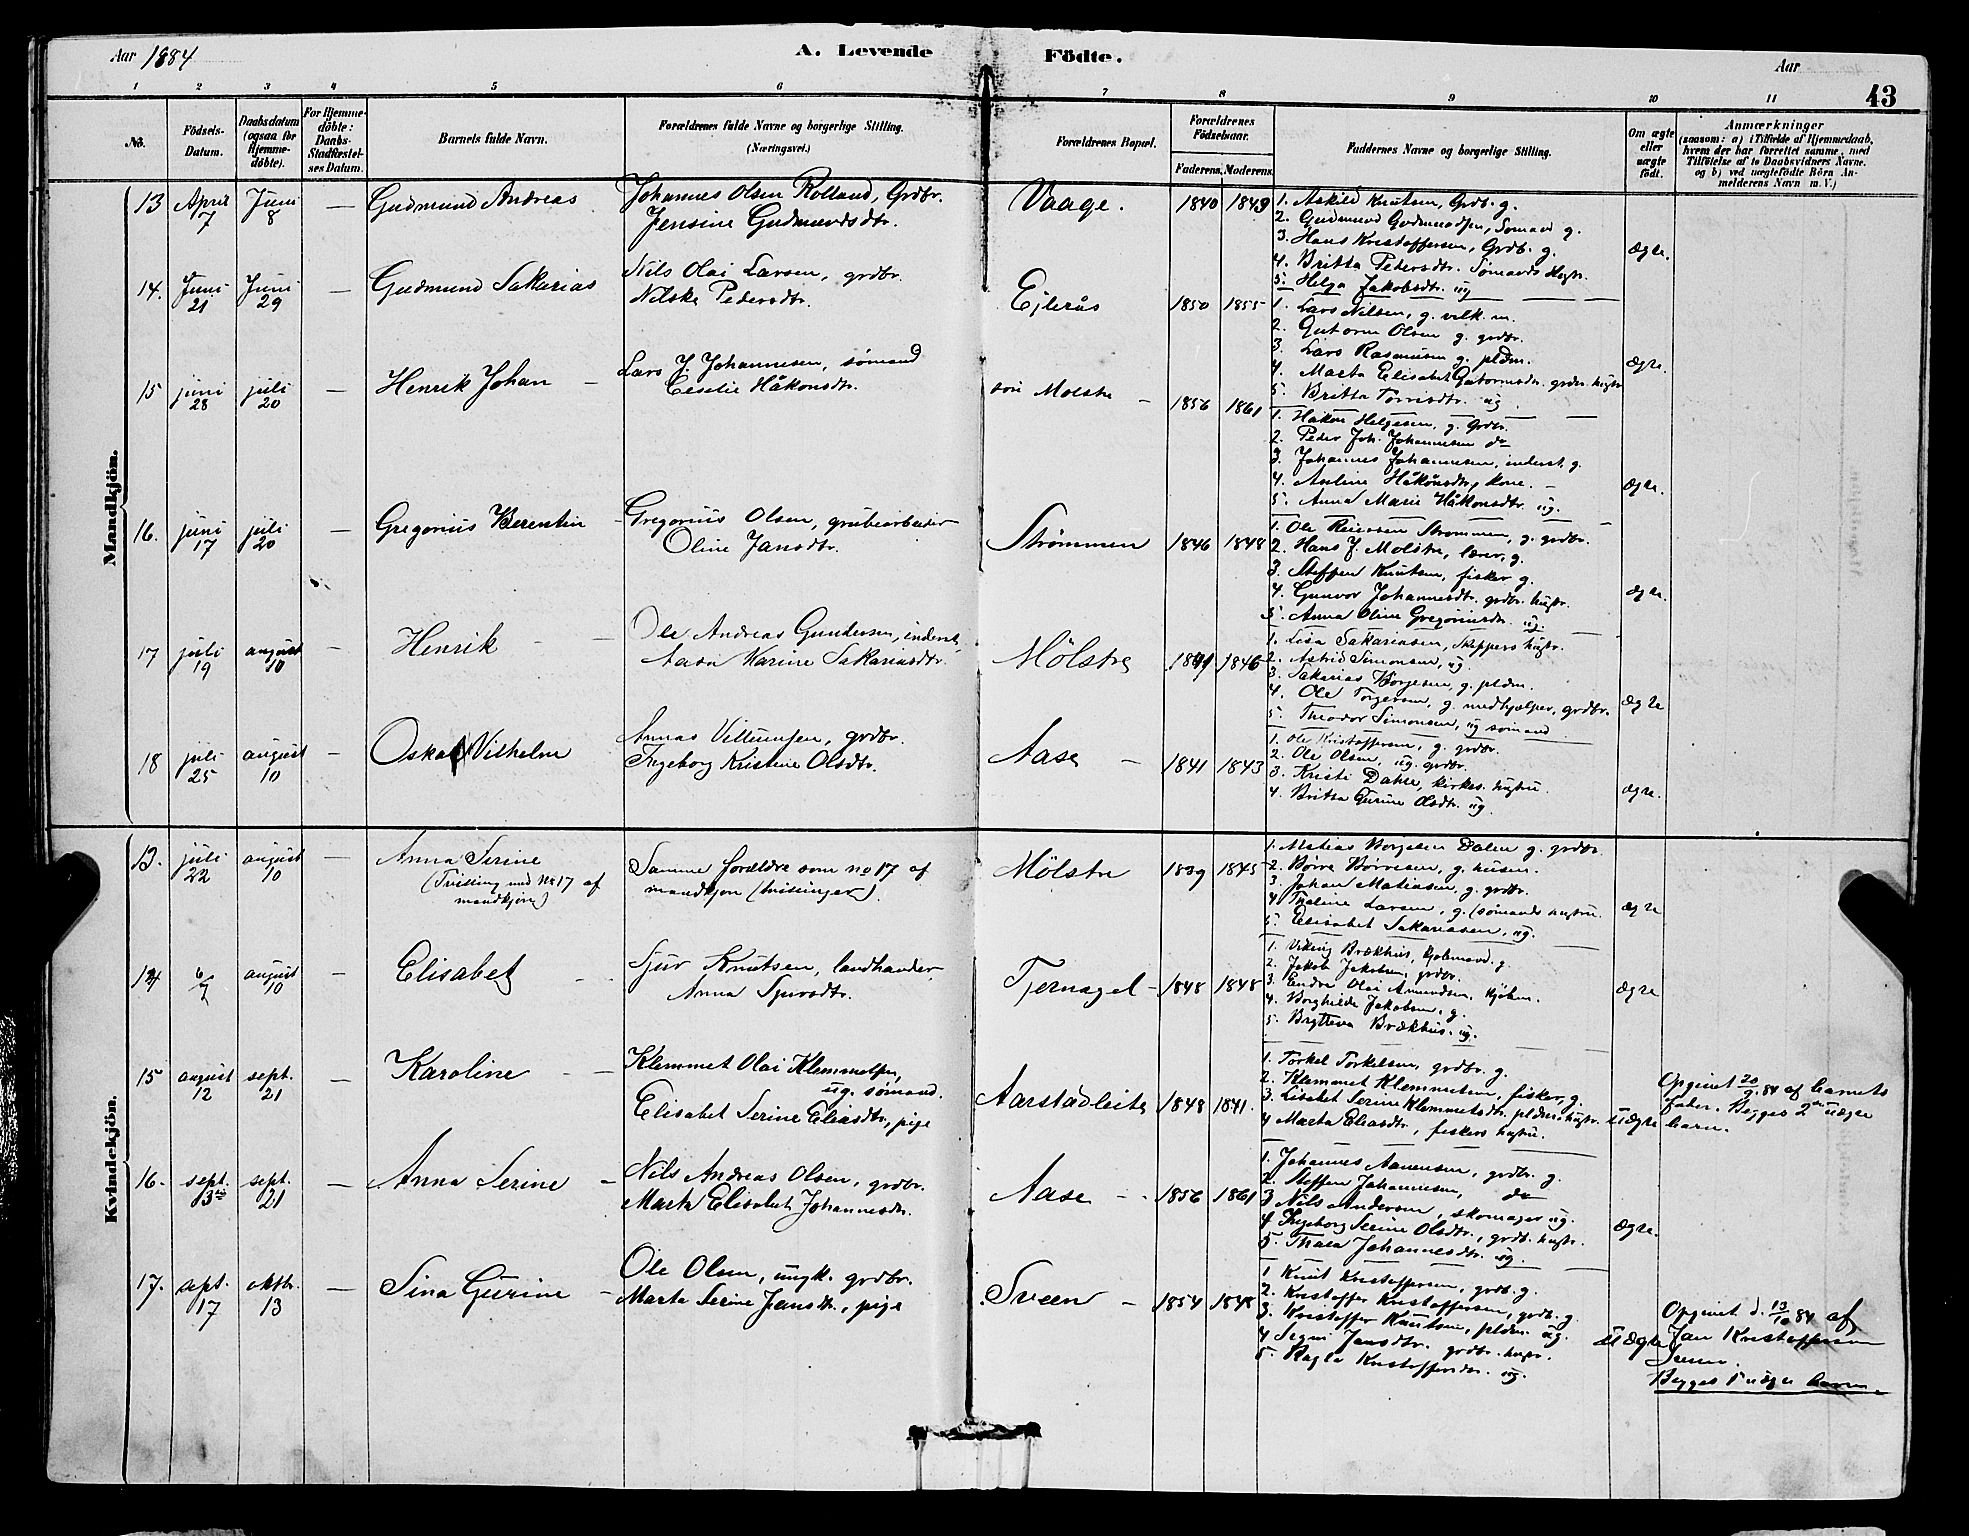 Aar 1884
A. Levende Födte.
Aar
43
1 2 3 4 5 6 7 8 9 10 11
No.
Födsels-Datum.
Daabsdatum (ogsaa for Hjemmedöbte).
For Hjemmedöbte: Daabs-Stadfæstelses Datum.
Barnets fulde Navn.
Forældrenes fulde Navne og borgerlige Stilling. (Næringsvei.)
Forældrenes Bopæl.
Forældrenes Födselsaar.
Faderens. Moderens.
Faddernes Navne og borgerlige Stilling.
Om ægte eller uægte födt.
Anmærkninger
(saasom: a) i Tilfælde af Hjemmedaab, hvem der har forrettet samme, med Tilföielse af to Daabsvidners Navne. og b) ved uægtefödte Börn Anmelderens Navn m. V.)
Mandkjön.
13 April 7 Juni 8 — Gudmund Andreas
Johannes Olsen Rolland, Grdbr.
Jensine Gudmundsdtr.
Vaage. 1840 1849
1. Askild Knutsen, Grdb. g.
2. Gudmund Gudmundsen, Sømand g.
3. Hans Kristoffersen, Grdb. g.
4. Britta Pedersdtr. Sømands Hustr.
5. Helga Jakobsdtr. ug
Ægte.
14. Juni 21 Juni 29 — Gudmund Sakarias
Nils Olai Larsen, grdbr.
Nilske Pedersdtr.
Ejlerås 1850 1855
1. Lars Nilsen, g. velk. m.
2. Gutorm Olsen g. grdbr.
3. Lars Rasmusen g. pldm.
4. Marta Elisabet Gutormsdr. grdbr. hustr
5. Britta Torrisdtr. ug.
Ægte.
15 juni 28 juli 20 — Henrik Johan —
Lars J. Johannesen, sømand
Ceselie Håkonsdtr.
Molstre — 1856 1861
1. Håkon Helgesen, g. Grdbr.
2. Peder Joh. Johannesen do
3. Johannes Johannesen, inderst, g.
4. Anline Håkonsdtr, kone. —
5. Anna Marie Håkonsdtr. ug.
Ægte.
16. juni 17 juli 20 — Gregorius Berentin
Gregorius Olsen, grubearbeider
Oline Jansdtr.
Strømmen 1846 1848
1. Ole Reiersen Strømmen, g. grdbr.
2. Hans J. Molstre, lærer, g.
3. Steffen Knutsen, fisker g.
4. Gunvor Johannesdtr. grdbr. hustr.
5. Anna Oline Gregoriusdr. ug.
Ægte.
17 juli 19 august 10 — Henrik —
Ole Andreas Gundersen, inderst,
Aasa Karine Sakariasdtr.
Mölstre 1846
1. Lisa Sakariasen, skippers hustr.
2. Astrid Simonsen, ug.
3. Sakarias Børgesen, g. pldm.
4. Ole Torgersen, g. medhjælper, grdbr.
5. Theodor Simonsen, ug sømand
Ægte
18 juli 25 august 10 — Oskar Vilhelm
Annas Villumsen, grdbr.
Ingeborg Kristine Olsdtr.
Aase — 1841 1843
1. Ole Kristoffersen, g. grdbr.
2. Ole Olsen, ug. grdbr.
3. Kristi Dahle, kirkes. hustru.
4. Britta Gurine Olsdtr. ug.
Ægte.
Kvindekjön.
13. juli 22 august 10 — Anna Serine
(Tvilling med No 17 af mandkjøn)
Samme forældre som no 17 af
mandkjøn (tvillinger).
Mölstre 1839 1845
1. Matias Borgesen Dalen g. grdbr.
2. Børre Børresen, g. husm.
3. Johan Matiasen, g. grdbr.
4 Thaline Larsen, g. (sømands hustru.
5. Elisabet Sakariasen, ug.
ægte
14 6/7 august 10 — Elisabet —
Sjur Knutsen, landhandler
Anna Sjursdtr.
Tjernagel — 1848 1848
1. Viking Brækhus, Kjøbmand g.
2. Jakob Jakobsen, grdbr.
3. Endre Olai Amundsen, Kjøbm.
4. Borghilde Jakobsen, g.
5. Brytteva Brækhus. ug.
Ægte
15 august 12 sept. 21 — Karoline —
Klemmet Olai Klemmetsen,
ug. sømand.
Elisabet Serine Eliasdtr., pige
Aarstadleite 1848 1841.
1. Torkel Torkelsen, grdbr. g.
2. Klemmet Klemmetsen, fisker, g.
3. Lisabet Serine Klemmetsdtr. pldm. hustr.
4 Marta Eliasdtr., fiskers hustru.
uægte
Opgivet 20/9.84 af barnets
fader. Begges 2det uægte
barn.
16. sept. 13de sept. 21 — Anna Serine —
Nils Andreas Olsen, grdbr.
Marta Elisabet Johannesdtr.
Aase — 1856 1861
1. Johannes Aanensen, grdbr. g.
2. Steffen Johannesen, do
3 Nils Andersen, skomager ug.
4 Ingeborg Serine Olsdtr., grdb. hustr.
5. Thala Johannesdtr. ug.
Ægte.
17. sept. 17 oktbr. 13 — Sina Gurine —
Ole Olsen, ungk. grdbr.
Marta Serine Jansdtr., pige
Sveen — 1854 1848
1 Knut Kristoffersen, grdb. g.
2. Kristoffer Kristoffersen, grdb. g.
3. Kristoffer Knutsen, pldm. ug.
4 Segni Jansdtr. grdbr. hustr.
5. Ragla Kristoffersdtr. ug.
uægte
Opgivet d. 13/10 84 af
Jan Kristoffersen
Sveen.
Begges 1 uægte barn.